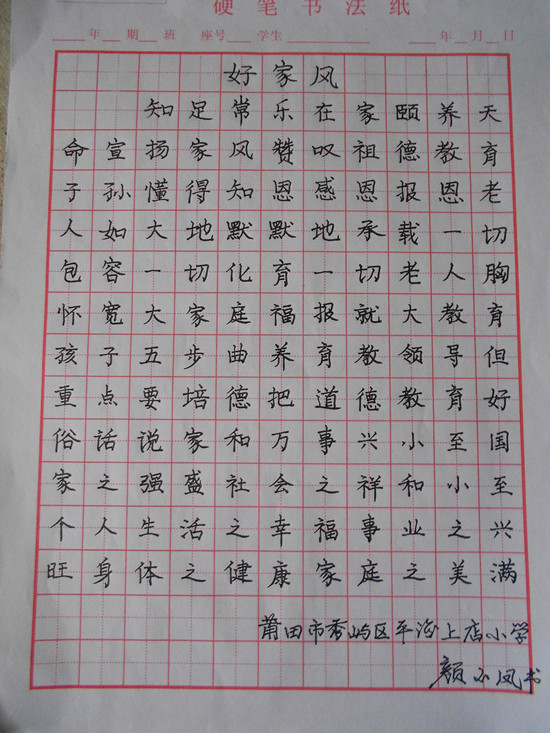 硬笔书法纸
年 期 班 座号 学生 年 月 日
好家风
知足常乐在家颐养天
命宣扬家风赞叹祖德教育
子孙懂得知恩感恩报恩老
人如大地默默地承载一切
包容一切化育一切老人胸
怀宽大家庭福报就大教育
孩子五步曲养育教领导但
重点要培德把道德教育好
俗话说家和万事兴小至国
家之强盛社会之祥和小至
个人生活之幸福事业之兴
旺身体之健康家庭之美满
莆田市秀屿区平海上店小学
颜小凤书